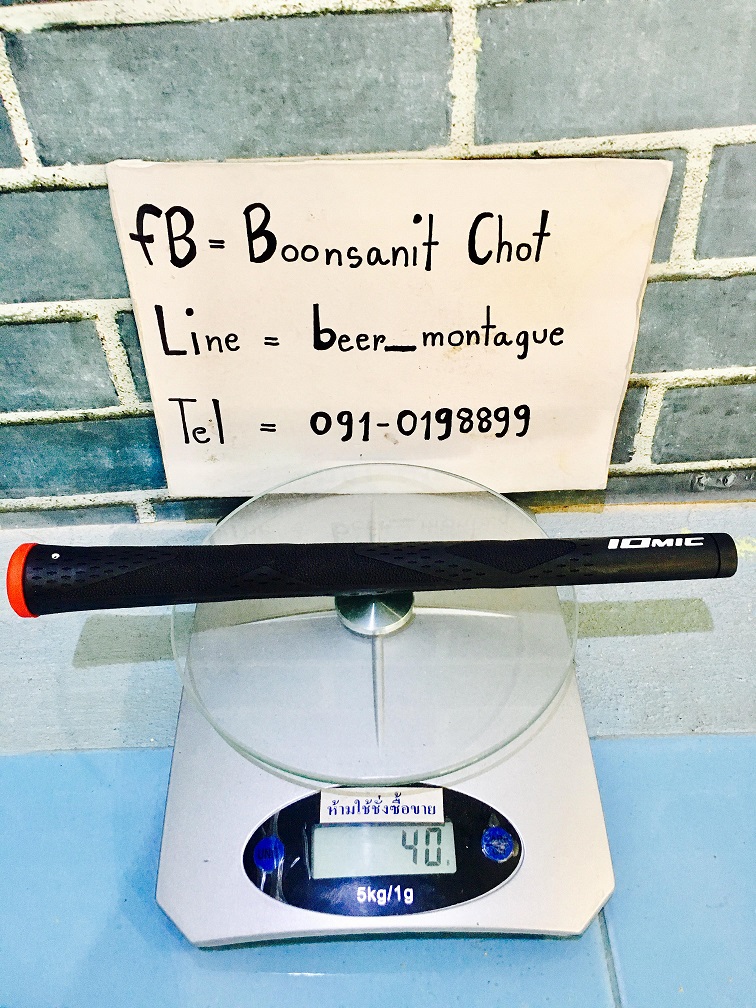 fB = Boonsanit Chot
Line = beer_montague
Tel = 091-0198899
IOMIC
ห้ามใช้ชั่งซื้อขาย
40
5kg/1g